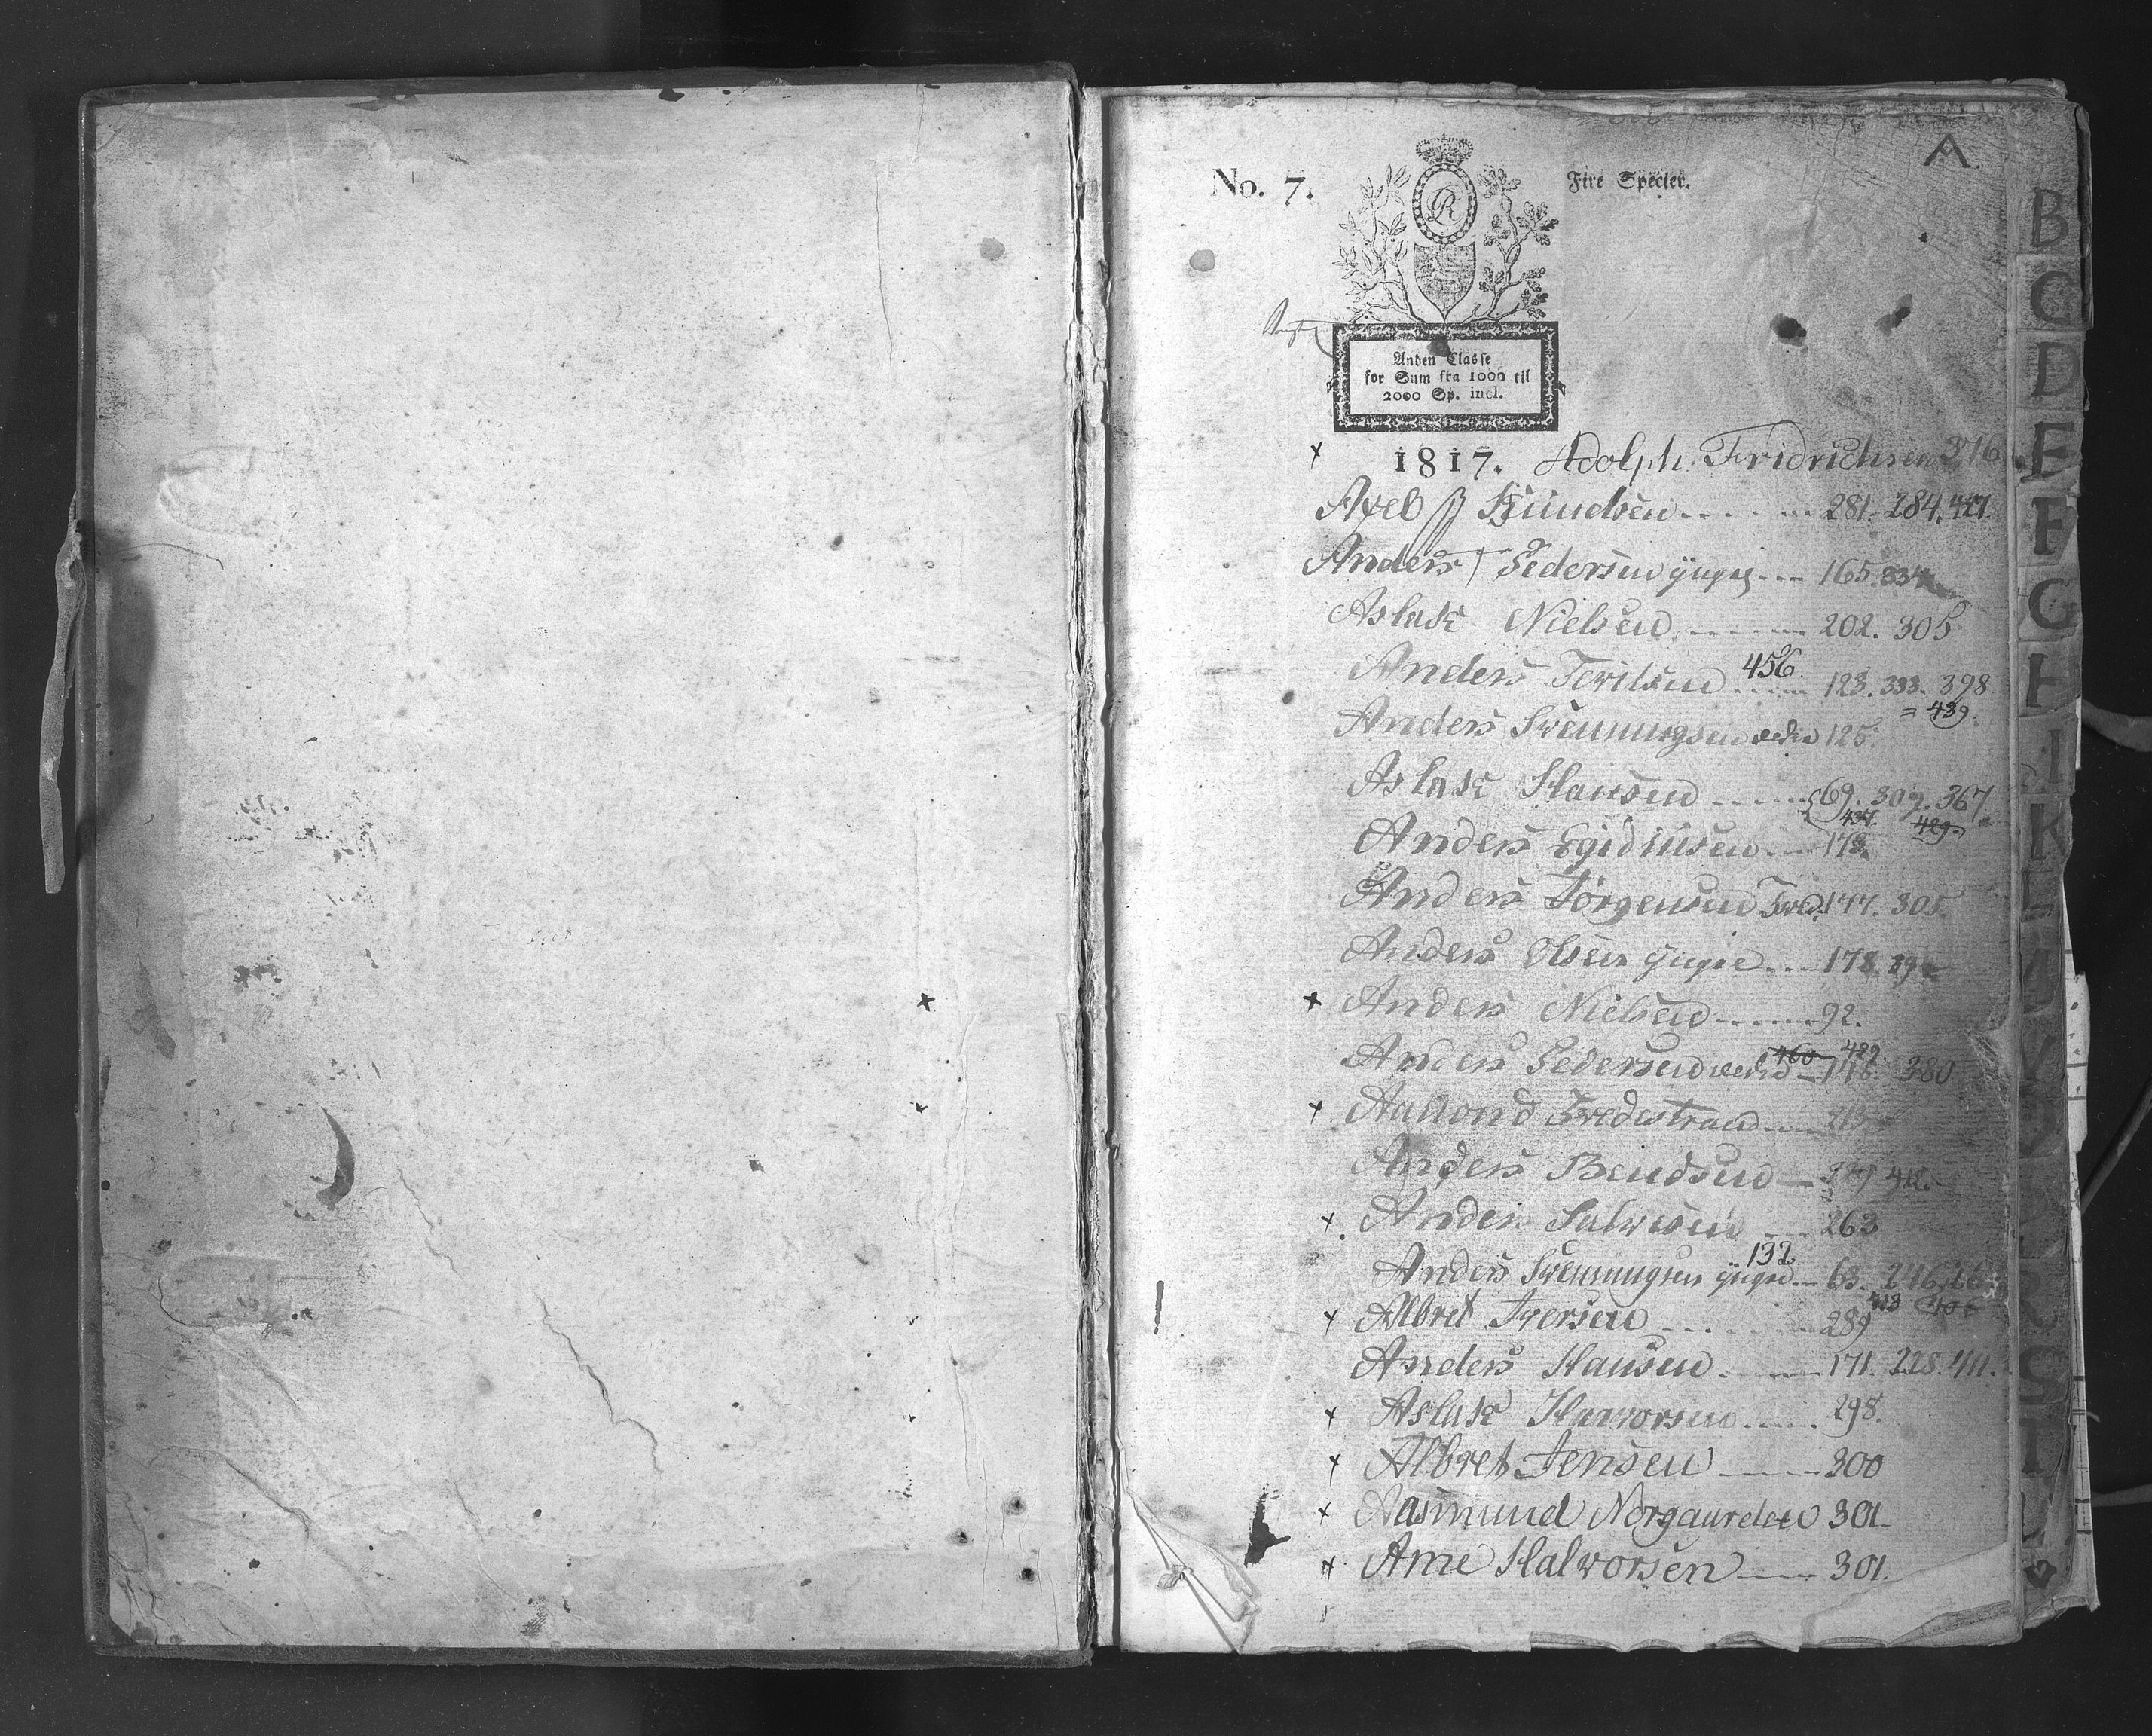 A.
No. 7.
R
Fire Specier.
Anden Classe
for Sum fra 1000 til
2000 Sp. incl.
x 1817. Adolph Fridrichsen 376
Axel Knudsen 281. 284. 427.
Anders Pedersen yngre 165. 334
Aslak Nielsen 202. 305
456.
Anders Terilsen 123. 333. 398
= 439.
Anders Svennungsen 125.
Aslak Hansen 69. 307. 367
437. 429.
Anders Egidiusen 178.
Anders Jörgensen Tved. 177. 305.
Anders Olsen yngre 178.
x Anders Nielsen 92.
460 429
Anders Pedersen 148. 380
x Aanond Tvedestrand 213
Anders Bendsen 412.
x Anders Salvesen 263
132
Anders Svennungsen yngre 63. 246.
413
x Albret Iversen 289
Anders Hansen 171. 228. 411.
x Aslak Havorsen 298.
x Albret Jensen 300
x Aasmund Norgaarden 301.
x Arne Halvorsen 301.
B
C
D
E
F
G
H
I
K
R
S
T